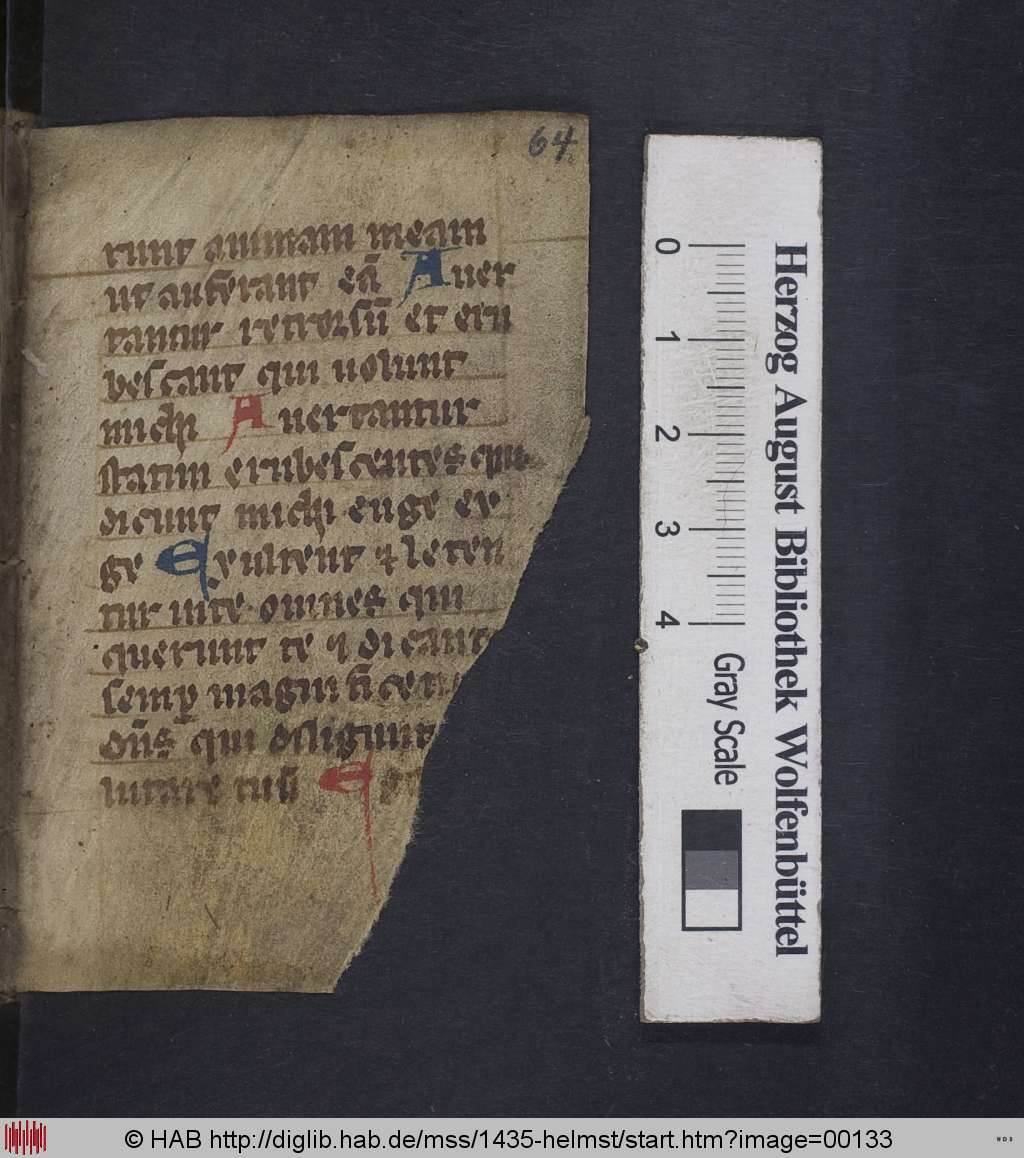 64
runt animam meam
ut auferant eā Auer
tantur retrorsū et eru
bescant qui uolunt
michi Auertantur
statim erubescentes qui
dicunt michi euge eu
ge Exultent ⁊ leten
tur in te omnes qui
querunt te ⁊ dicant
semꝑ magnificetur
dn̄s qui diligunt
lutare tuū Eg
0 1 2 3 4
Gray Scale
Herzog August Bibliothek Wolfenbüttel
© HAB http://diglib.hab.de/mss/1435-helmst/start.htm?image=00133